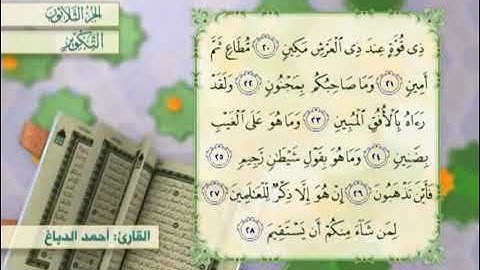 الجزء الثلاثون
التكوير
ذِى قُوَّةٍ عِندَ ذِى ٱلْعَرْشِ مَكِينٍ ٢٠ مُّطَاعٍ ثَمَّ
أَمِينٍ ٢١ وَمَا صَاحِبُكُم بِمَجْنُونٍ ٢٢ وَلَقَدْ
رَءَاهُ بِٱلْأُفُقِ ٱلْمُبِينِ ٢٣ وَمَا هُوَ عَلَى ٱلْغَيْبِ
بِضَنِينٍ ٢٤ وَمَا هُوَ بِقَوْلِ شَيْطَٰنٍ رَّجِيمٍ ٢٥
فَأَيْنَ تَذْهَبُونَ ٢٦ إِنْ هُوَ إِلَّا ذِكْرٌ لِّلْعَٰلَمِينَ ٢٧
لِمَن شَآءَ مِنكُمْ أَن يَسْتَقِيمَ ٢٨
القارئ: أحمد الدباغ